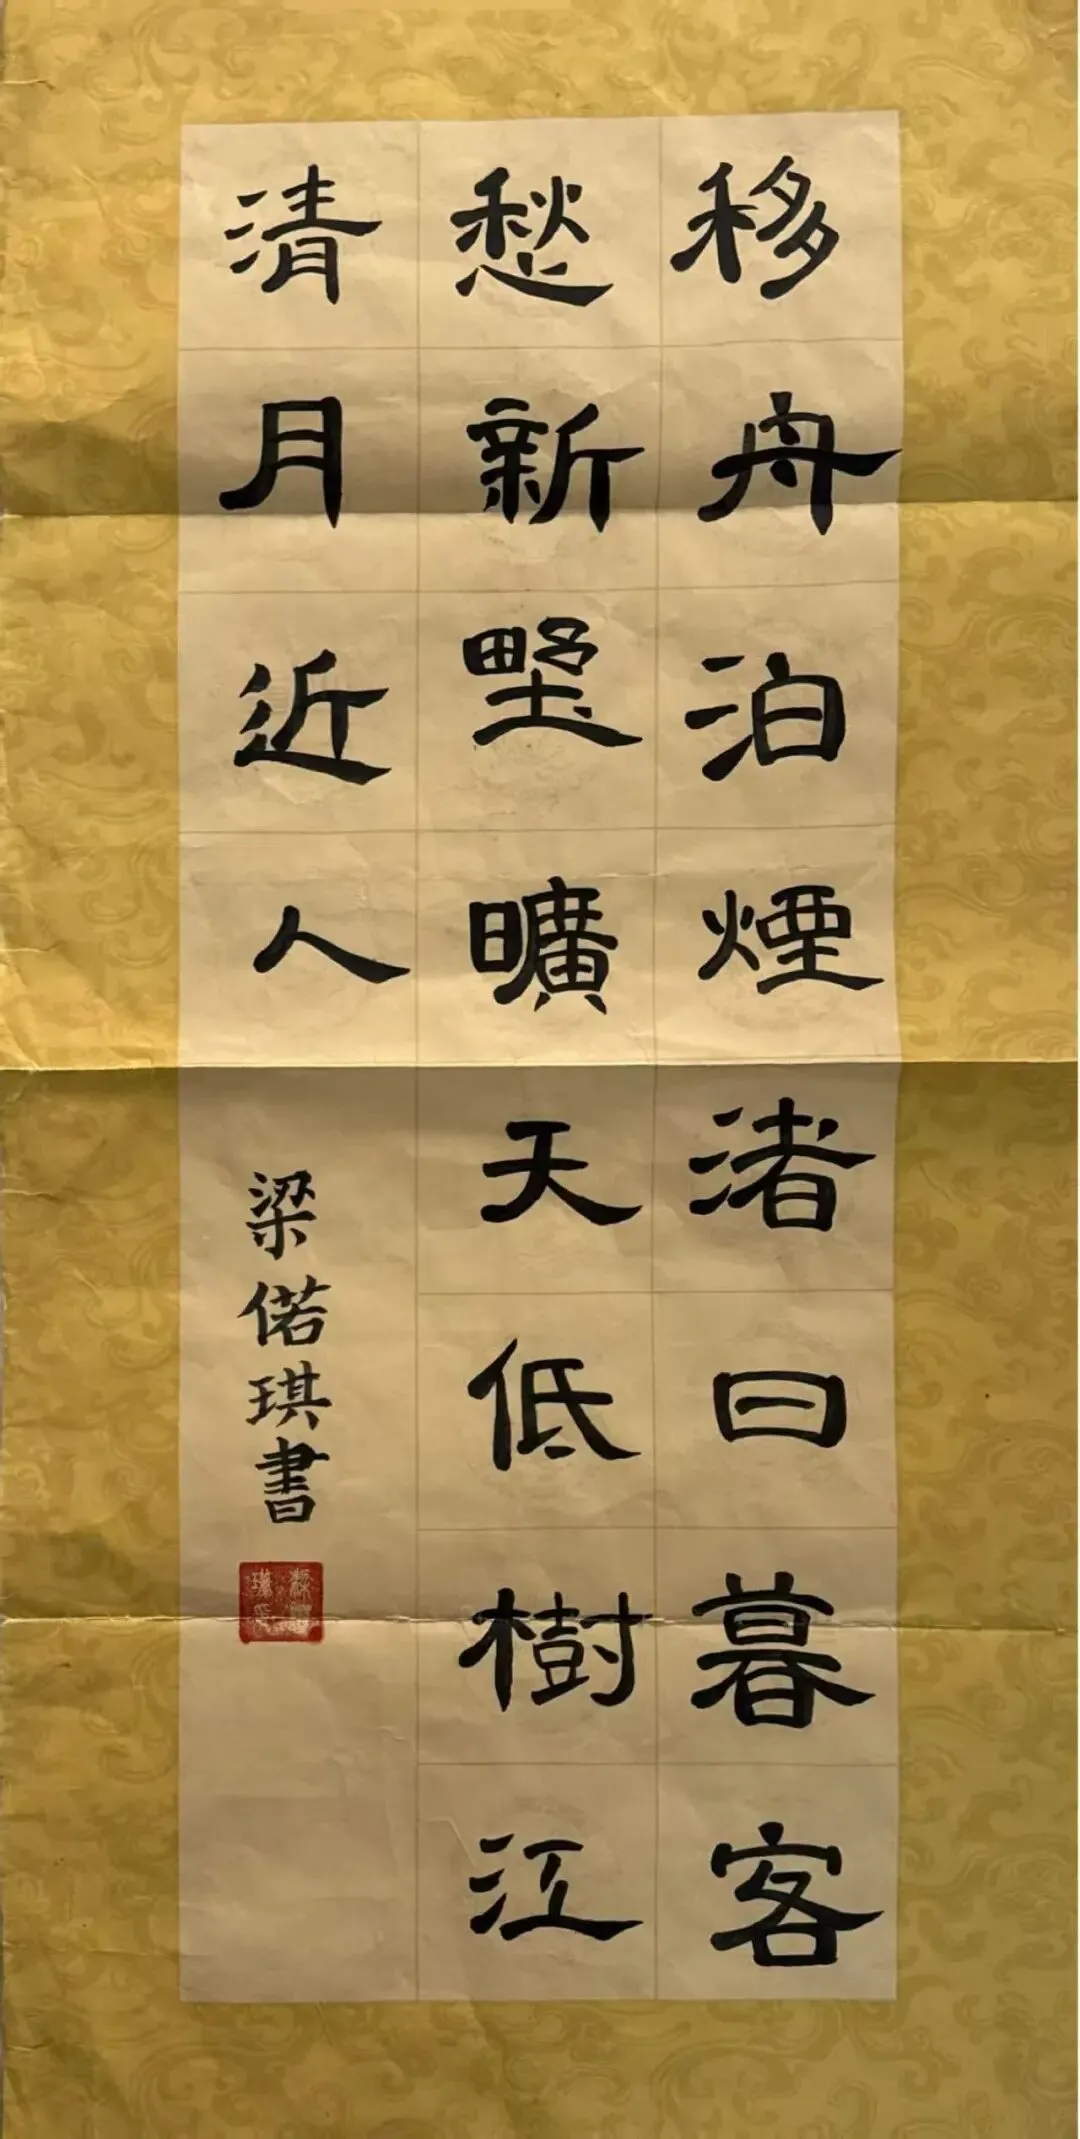 移舟泊煙渚日暮客
愁新野曠天低樹江
清月近人
梁偌琪書